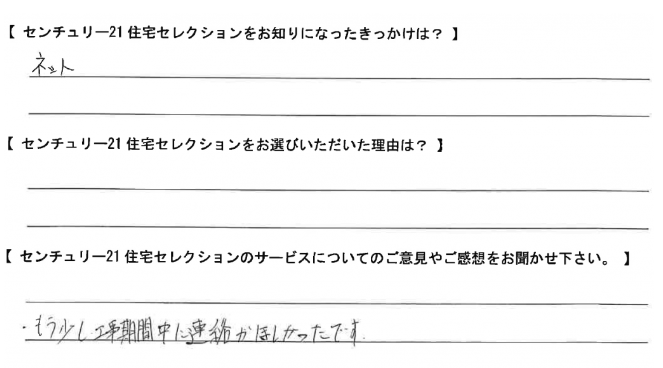 【 センチュリー21 住宅セレクションをお知りになったきっかけは？ 】
ネット
【 センチュリー21 住宅セレクションをお選びいただいた理由は？ 】
【 センチュリー21 住宅セレクションのサービスについてのご意見やご感想をお聞かせ下さい。 】
・もう少し工事期間中に連絡がほしかったです。